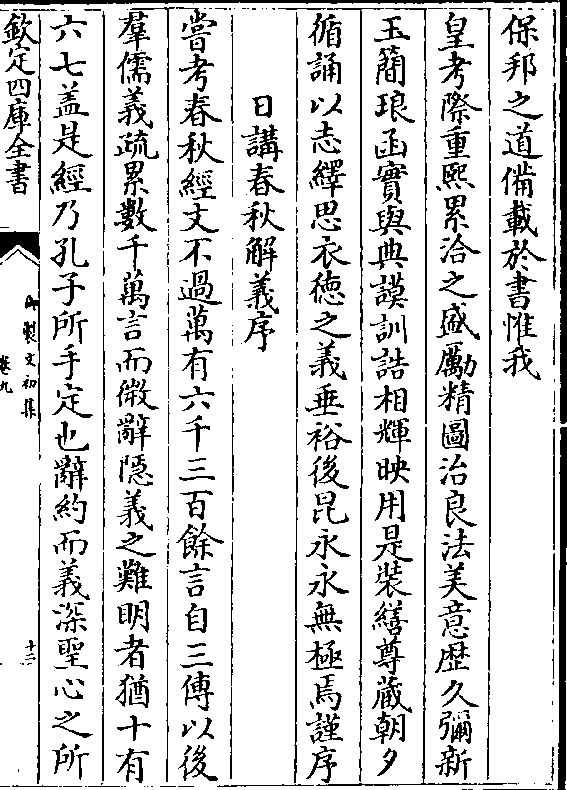 保邦之道備載於書惟我
皇考際重熙累洽之盛勵精圖治良法美意歴久彌新
玉簡琅函實與典謨訓誥相輝映用是裝繕尊藏朝夕
循誦以志繹思衣徳之義垂裕後昆永永無極焉謹序
日講春秋解義序
嘗考春秋經文不過萬有六千三百餘言自三傳以後
羣儒義疏累數千萬言而微辭隱義之難明者猶十有
六七盖是經乃孔子所手定也辭約而義深聖心之所
欽定四庫全書
御製文初集
卷九
十二